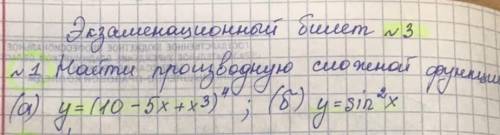 Экзаменационный билет №3
№1 Найти производную сложной функции
(а) y=(10-5x+x³)⁴; (б) y=sin²x